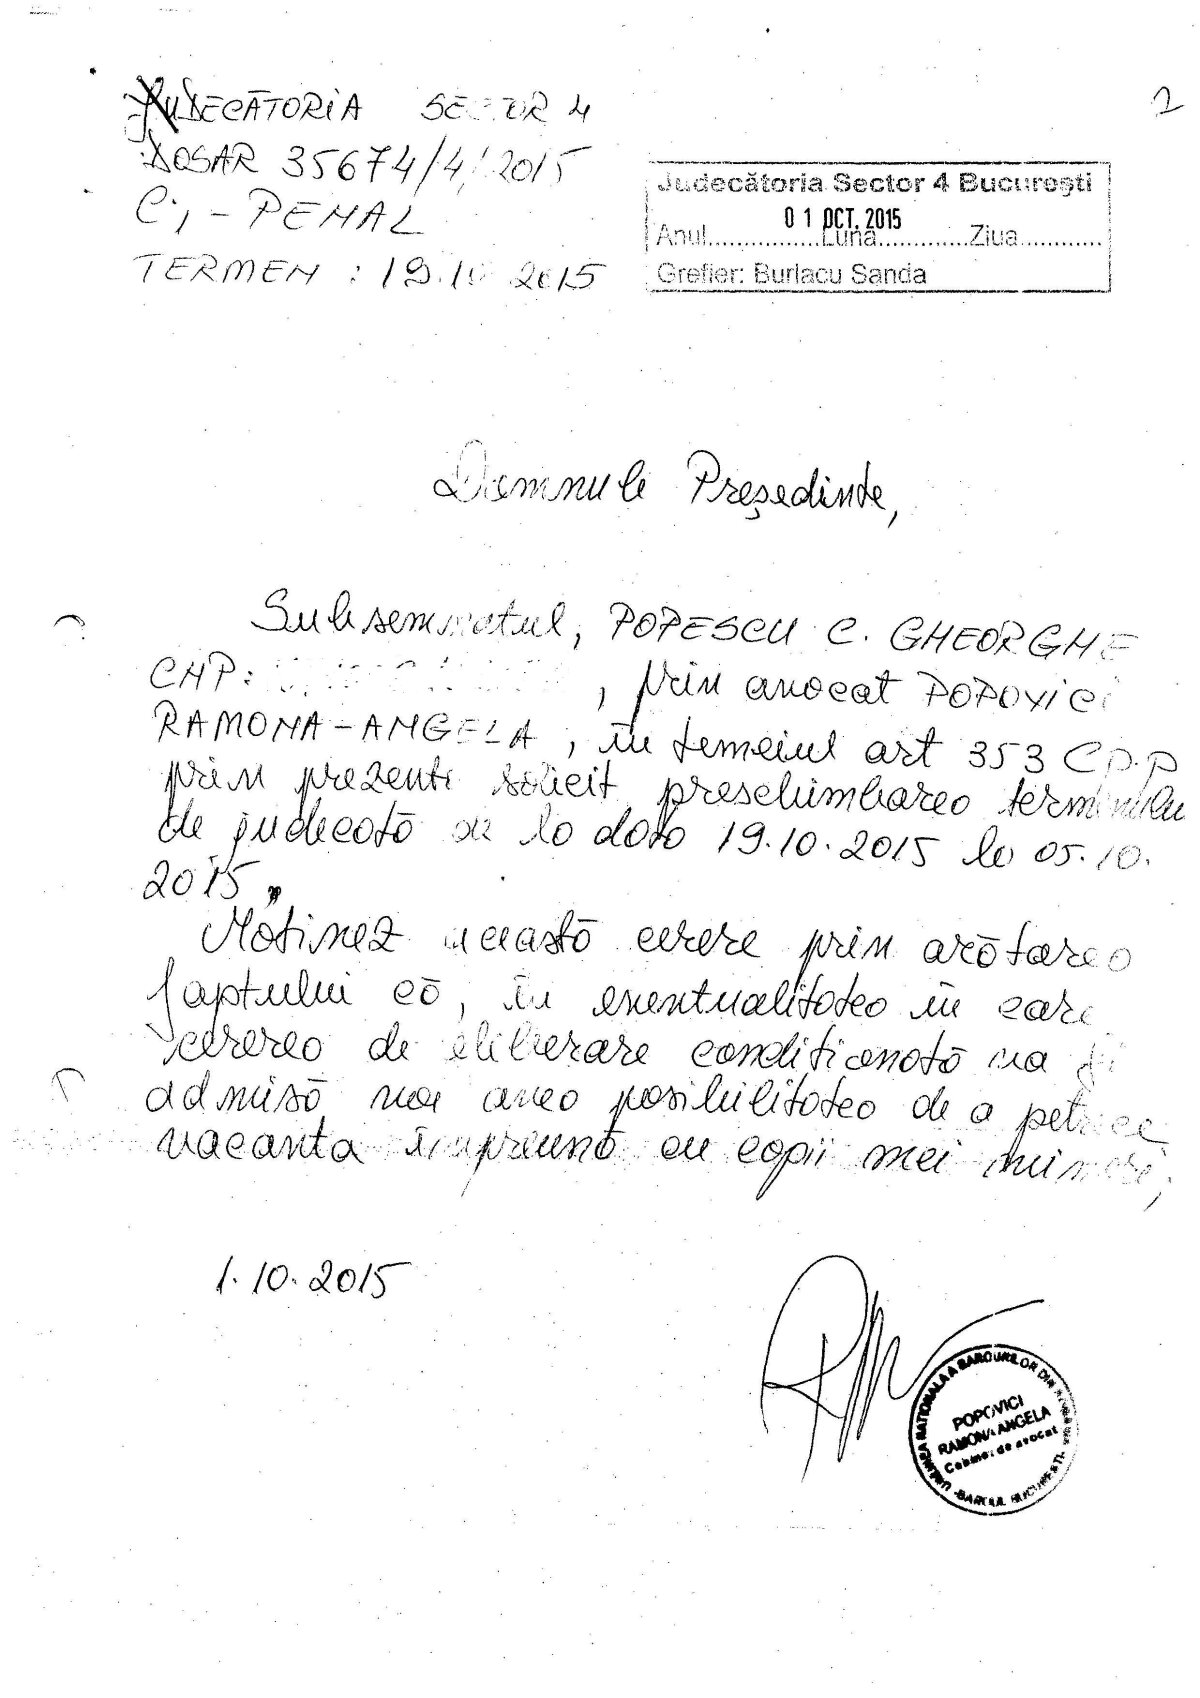 2
JUDECĂTORIA SECTOR 4
DOSAR 35674/4/2015
C; - PENAL
TERMEN : 19.10 2015
Judecătoria Sector 4 Bucureşti
01 OCT. 2015
Anul................Luna.............Ziua............
Grefier: Burlacu Sanda
Domnule Preşedinte,
Subsemnatul, POPESCU C. GHEORGHE
CNP: , prin avocat POPOVICI
RAMONA-ANGELA, în temeiul art 353 C.P.P
prin prezenta solicit preschimbarea termenulu
de judecată de la data 19.10.2015 la 05.10.
2015.
Motivez această cerere prin arătarea
faptului că, în eventualitatea în care
cererea de eliberare condiționată va fi
admisă voi avea posibilitatea de a petrece
vacanta împreună cu copii mei minori;
1.10.2015
UNIUNEA NATIONALA A BAROURILOR DIN ROMANIA
POPOVICI
RAMONA ANGELA
Cabinet de avocat
-BAROUL BUCURESTI-